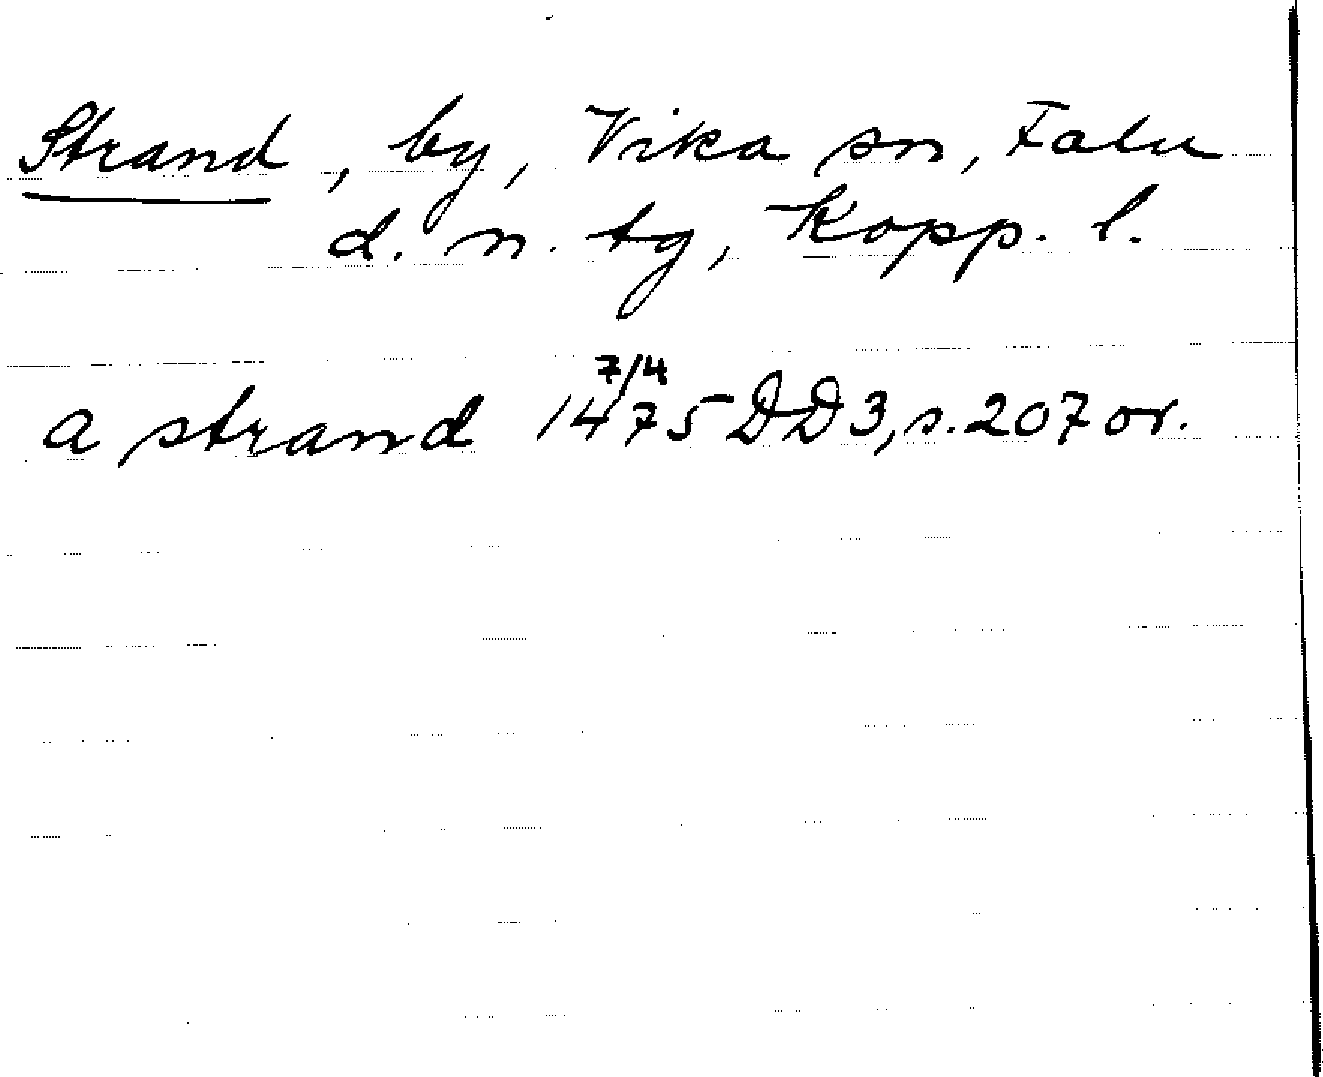 Strand, by, Vika sn, Falu
d. n. tg, Kopp. l.
a strand 1475 7/4 DD 3, s. 207 or.